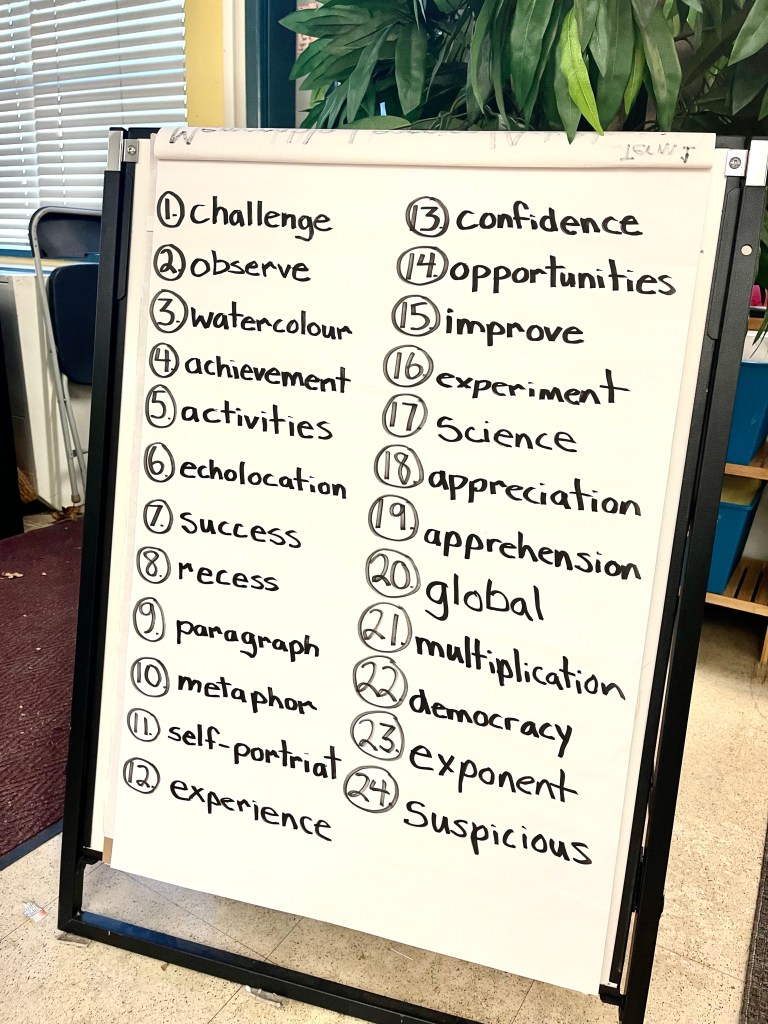 Term 1
1. challenge
2. observe
3. watercolour
4. achievement
5. activities
6. echolocation
7. success
8. recess
9. paragraph
10. metaphor
11. self-portriat
12. experience
13. confidence
14. opportunities
15. improve
16. experiment
17. Science
18. appreciation
19. apprehension
20. global
21. multiplication
22. democracy
23. exponent
24. Suspicious